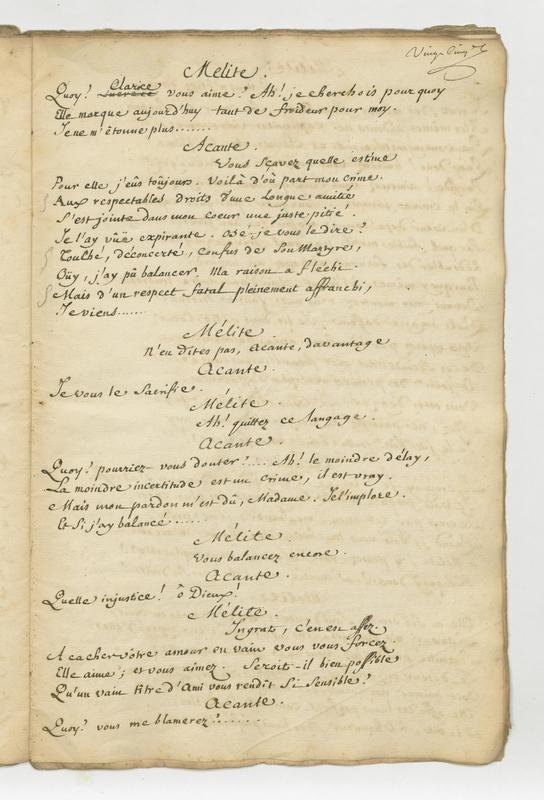 Vingt Cinq
Mélite.
Quoy! Clarice Lucrece vous aime? Ah! je cherchois pourquoy
Elle marque aujourd'huy tant de froideur pour moy.
Je ne m'étonne plus.......
Acante.
Vous Sçavez quelle estime
Pour elle j'eûs toûjours. Voilà d'où part mon crime.
Aux respectables droits d'une Longue amitié
S'est jointe dans mon coeur une juste pitié.
Je l'ay vûë expirante. Osé-je vous le dire?
Touché, déconcerté, confus de Son Martyre,
Oüy, j'ay pû balancer. Ma raison a fléchi.
Mais d'un respect fatal pleinement affranchi,
Je viens......
Mélite.
N'en dites pas, Acante, davantage
Acante.
Je vous le Sacrifie.
Mélite.
Ah! quittez ce langage.
Acante.
Quoy! pourriez-vous douter..... Ah! le moindre délay,
La moindre incertitude est un crime, il est vray.
Mais mon pardon m'est dû, Madame. Je l'implore.
Et Si j'ay balancé......
Mélite.
Vous balancez encore.
Acante.
Quelle injustice! ô Dieux!
Mélite.
Ingrat, c'en est assez.
A cacher votre amour en vain vous vous forcez.
Elle aime; et vous aimez. Seroit-il bien possible
Qu'un vain titre d'Ami vous rendît Si Sensible?
Acante.
Quoy! vous me blamerez?.......